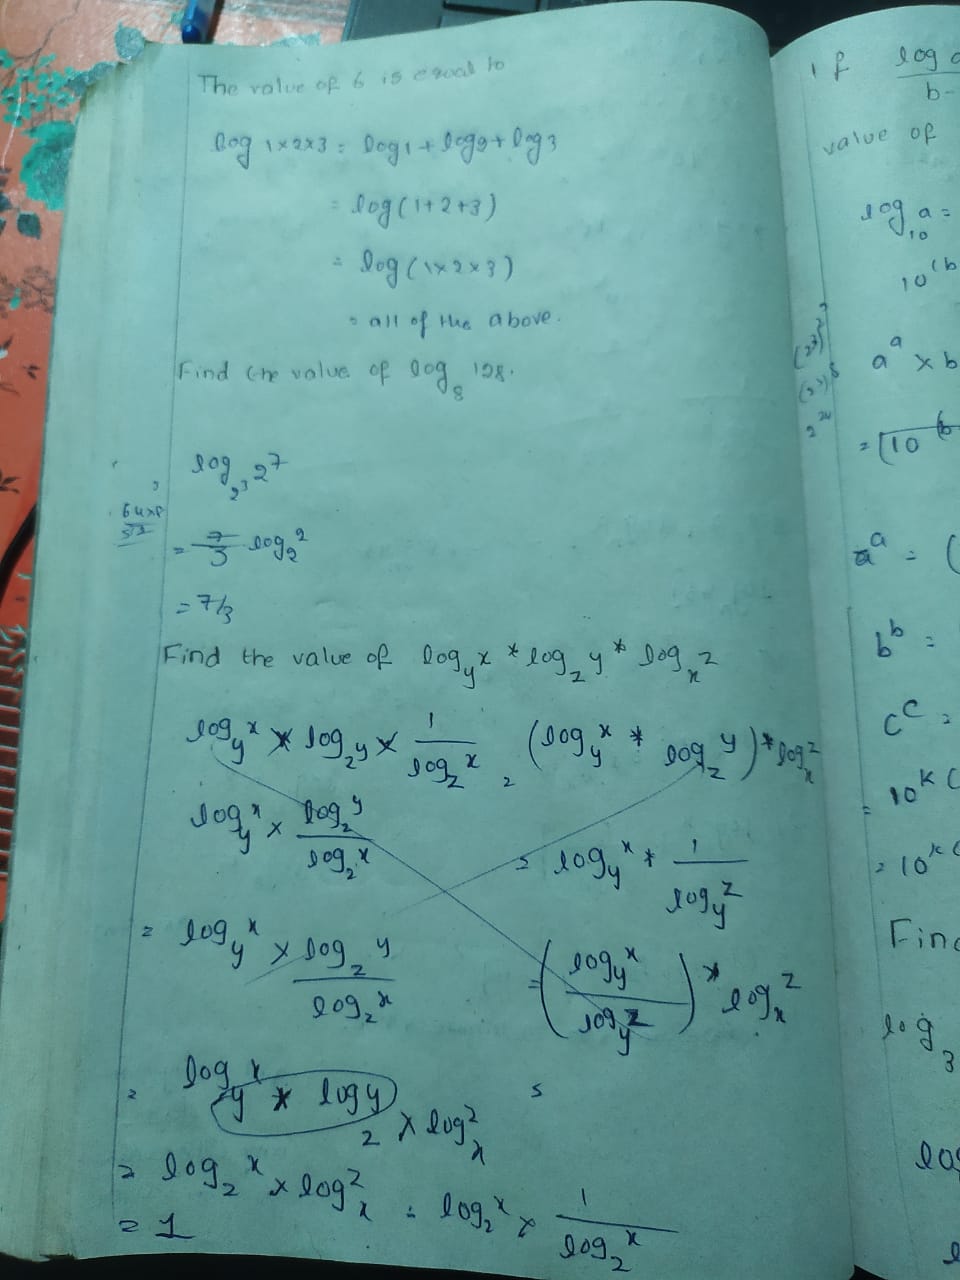 The value of 6 is equal to
log 1×2×3 = log1 + log2 + log3
= log(1+2+3)
= log(1×2×3)
= all of the above.
Find the value of log₈ 128.
log_{2^3} 2^7
64×8
512
= 7/3 log₂ 2
= 7/3
Find the value of log_y x * log_z y * log_x z
log_y x × log_z y × 1/log_z x = (log_y x * log_z y) * log_x z
log_y x × log_z y / log_z x
= log_y x * 1/log_y z
= log_y x × log_z y / log_z x
= (log_y x / log_y z) * log_x z
= log_y x * log_z y × log_x z
= log_z x × log_x z = log_z x × 1/log_z x
= 1
If log a
b-
value of
log₁₀ a =
10^(b
(2^3)
2^24
a^a × b
= [10^(b
a^a = (
b^b =
c^c =
= 10^k (
= 10^k (
Find
log₃
log